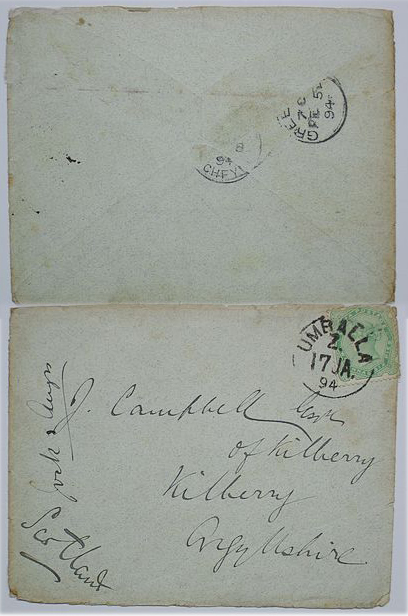 GREE
7 C
FE 5
94
8
94
CHEY
UMBALLA
Z.
17 JA.
94
J. Campbell Esqr
of Kilberry
Kilberry
Argyllshire
Scotland